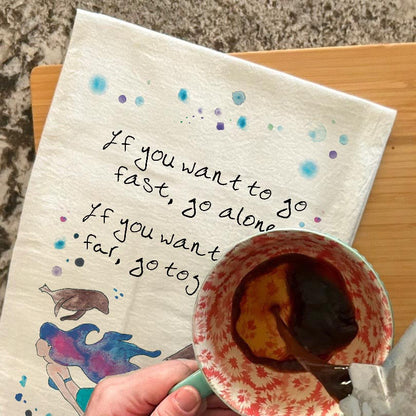 If you want to go
fast, go alone
If you want
far, go